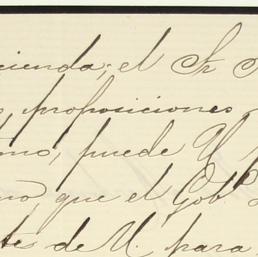 cienda; el Sr
proposiciones
mo, puede V
mo, que el Gobo
tes de V. para